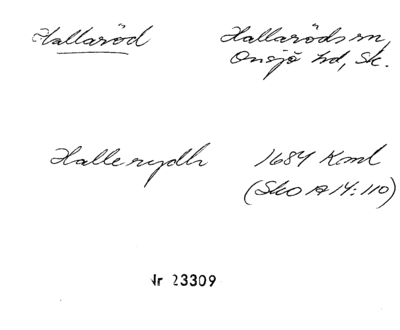 Hallaröd Hallaröds sn,
Onsjö hd, Sk.
Hallerydh 1684 Kml
(Sko A 14:110)
Nr 23309